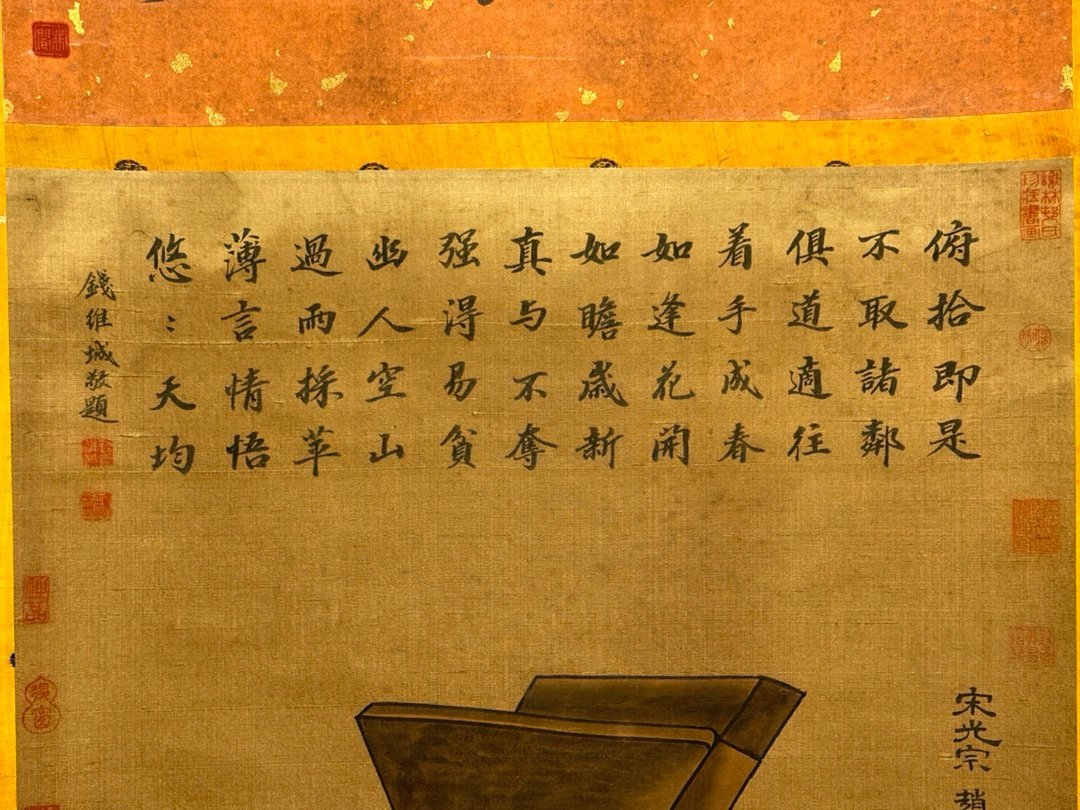 俯拾即是
不取諸鄰
俱道適往
着手成春
如逢花開
如瞻歲新
真与不奪
强得易貧
幽人空山
過雨採苹
薄言情悟
悠〻天均
錢維城敬題
宋光宗趙